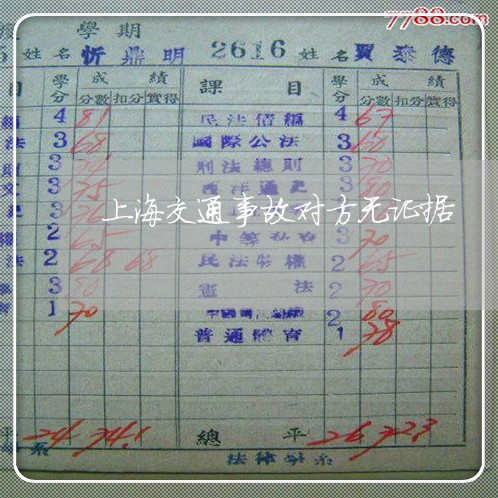 7788.com
學期
姓名 忻鼎明 2616 姓名 賈泰德
目 學分 成績 課目 學分 成績
分數 扣分 實得 分數 扣分 實得
4 81 民法債編 4 67
法 3 68 國際公法 3 60
3 刑法總則 3 70
3 75 政法通史 3 80
3
上海交通事故对方无证据
2 65 3 70
法 2 68 68 民法物權 2 65
3 80 憲法 2 70
1 70 2 80
普通體育 1 78
平 24 74.1 總平 26 72.3
系 法律學系